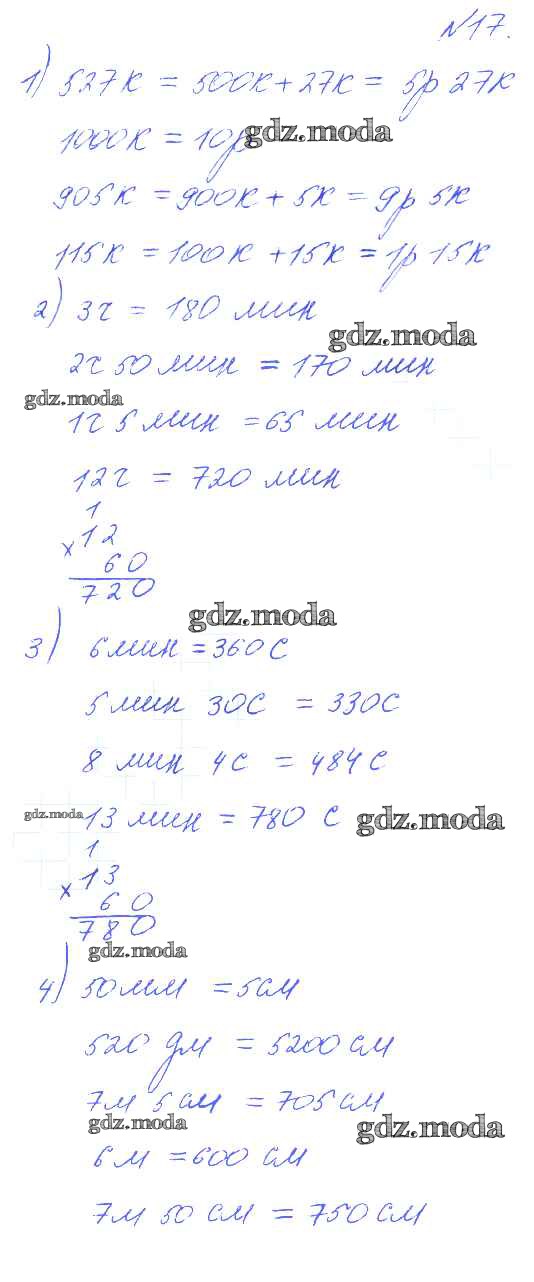 №17.
1) 527к = 500к + 27к = 5р 27к
1000к = 10р
gdz.moda
905к = 900к + 5к = 9р 5к
115к = 100к + 15к = 1р 15к
2) 3ч = 180 мин
gdz.moda
2ч 50 мин = 170 мин
gdz.moda
1ч 5 мин = 65 мин
12ч = 720 мин
1
× 12
60
720
gdz.moda
3) 6 мин = 360 с
5 мин 30 с = 330 с
8 мин 4 с = 484 с
gdz.moda
13 мин = 780 с
gdz.moda
1
× 13
60
780
gdz.moda
4) 50 мм = 5 см
520 дм = 5200 см
7м 5 см = 705 см
gdz.moda
gdz.moda
6 м = 600 см
7м 50 см = 750 см